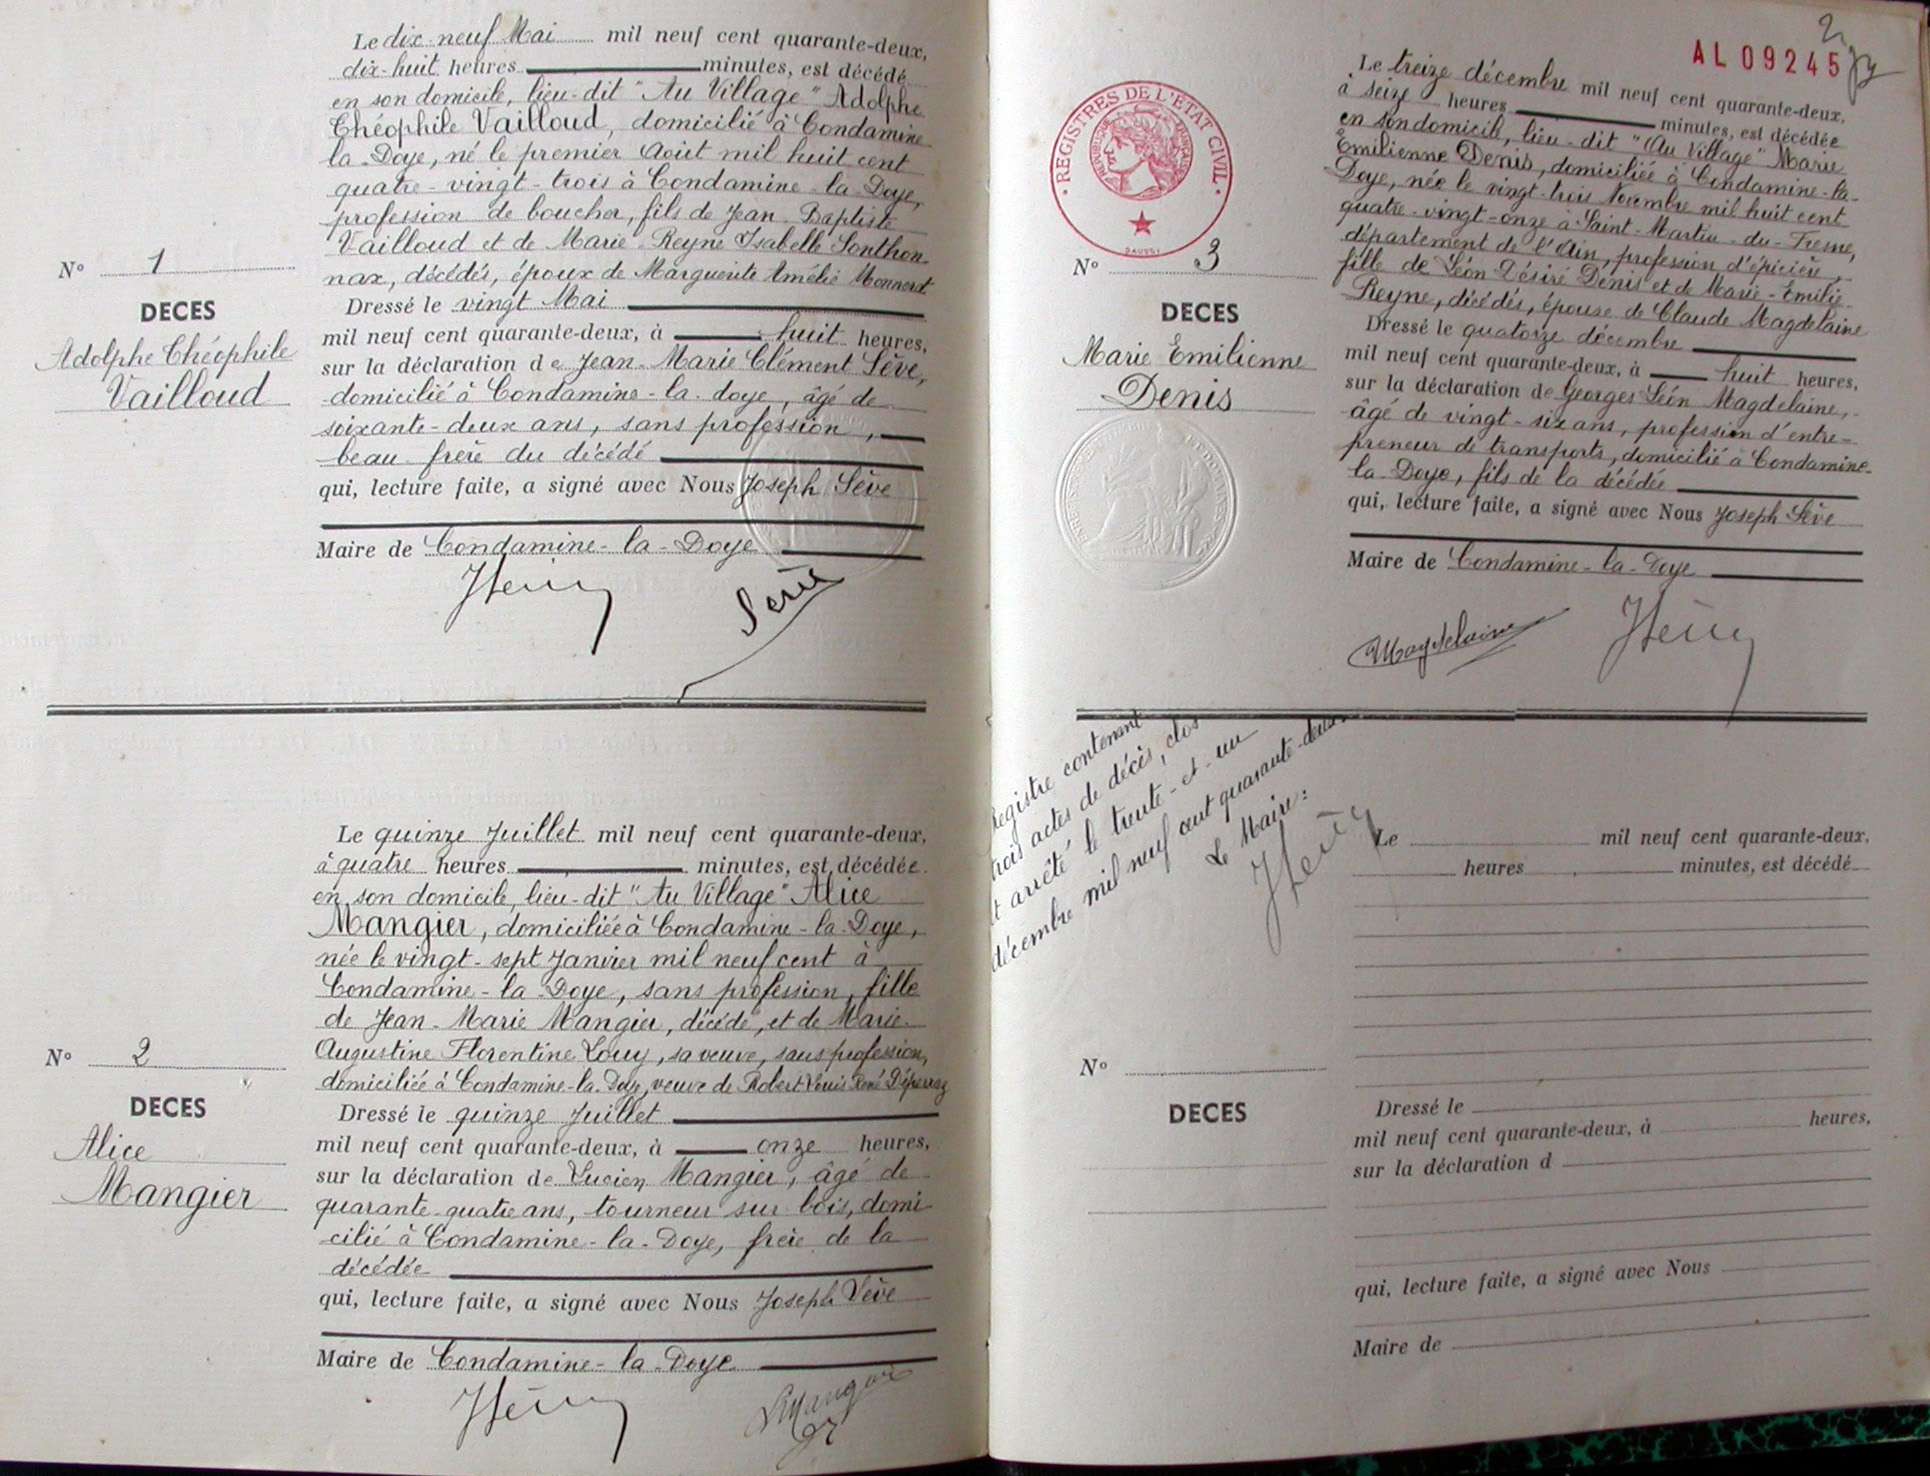 Le dix-neuf Mai mil neuf cent quarante-deux,
dix-huit heures minutes, est décédé
en son domicile, lieu-dit "Au Village" Adolphe
Théophile Vailloud, domicilié à Condamine
la-Doye, né le premier Août mil huit cent
quatre-vingt-trois à Condamine-la-Doye,
profession de boucher, fils de Jean-Baptiste
Vailloud et de Marie-Reyne Isabelle Sonthon
nax, décédés, époux de Marguerite Amélie Monneret
N° 1
DECES
Adolphe Théophile
Vailloud
Dressé le vingt Mai
mil neuf cent quarante-deux, à huit heures,
sur la déclaration de Jean-Marie Clément Sève,
domicilié à Condamine-la-doye, âgé de
soixante-deux ans, sans profession,
beau-frère du décédé
qui, lecture faite, a signé avec Nous Joseph Sève
Maire de Condamine-la-Doye
JSève
Sève
Le quinze Juillet mil neuf cent quarante-deux,
à quatre heures minutes, est décédée
en son domicile, lieu-dit "Au Village" Alice
Mangier, domiciliée à Condamine-la-Doye,
née le vingt-sept Janvier mil neuf cent à
Condamine-la-Doye, sans profession, fille
de Jean-Marie Mangier, décédé, et de Marie
Augustine Florentine Louy, sa veuve, sans profession,
domiciliée à Condamine-la-Doye, veuve de Robert Louis René
N° 2
DECES
Alice
Mangier
Dressé le quinze Juillet
mil neuf cent quarante-deux, à onze heures,
sur la déclaration de Lucien Mangier, âgé de
quarante-quatre ans, tourneur sur bois, domi
cilié à Condamine-la-Doye, frère de la
décédée
qui, lecture faite, a signé avec Nous Joseph Sève
Maire de Condamine-la-Doye
JSève
LMangier
2
AL 09245
REGISTRES DE L'ETAT CIVIL
REPUBLIQUE FRANÇAISE
Le treize décembre mil neuf cent quarante-deux,
à seize heures minutes, est décédée
en son domicile, lieu-dit "Au Village" Marie
Emilienne Denis, domiciliée à Condamine-la-
Doye, née le vingt-trois Novembre mil huit cent
quatre-vingt-onze à Saint-Martin-du-Fresne,
département de l'Ain, profession d'épicière,
fille de Léon Désiré Denis et de Marie-Emilie
Reyne, décédés, épouse de Claude Magdelaine
N° 3
DECES
Marie Emilienne
Denis
Dressé le quatorze décembre
mil neuf cent quarante-deux, à huit heures,
sur la déclaration de Georges Léon Magdelaine,
âgé de vingt-six ans, profession d'entre-
preneur de transports, domicilié à Condamine-
la-Doye, fils de la décédée
qui, lecture faite, a signé avec Nous Joseph Sève
Maire de Condamine-la-Doye
Magdelaine
JSève
Registre contenant
trois actes de décès, clos
et arrêté le trente-et-un
décembre mil neuf cent quarante-deux
Le Maire:
JSève
Le mil neuf cent quarante-deux,
heures minutes, est décédé
N°
DECES
Dressé le
mil neuf cent quarante-deux, à heures,
sur la déclaration d
qui, lecture faite, a signé avec Nous
Maire de